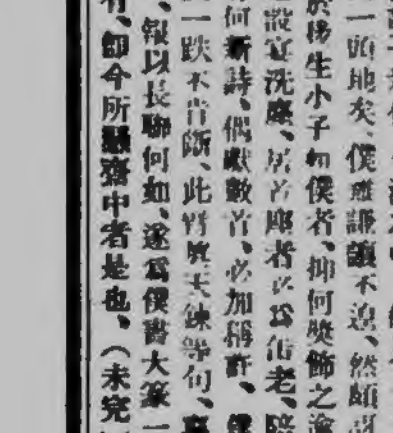 一頭地矣、僕雖謙讓不遑、然頗訝
於後生小子如僕者、抑何獎飾之逾
設宴洗塵、居首座者必爲缶老、陪
何新詩、偶獻數首、必加稱許、
一跌不肯斷、此臂眞天錬等句、
、報以長聯何如、遂爲僕書大篆一
有、卽今所懸齋中者是也、（未完